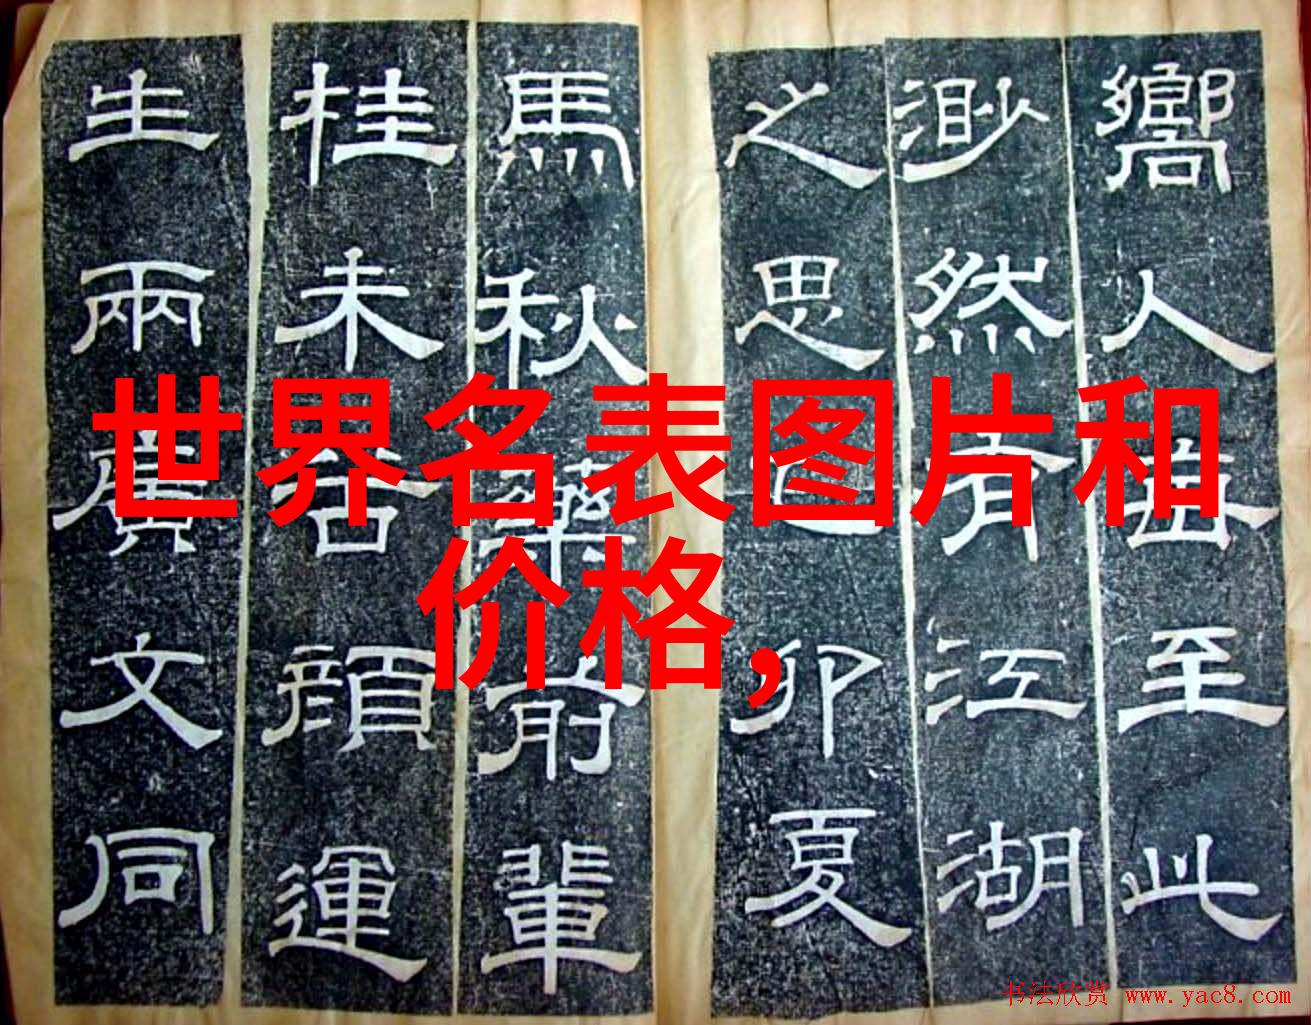 嚮人至此
渺然有江湖
之思己卯夏
馬秋藥前輩
桂未谷顏運
生兩廣文同
世界名表图片和
价格,
书法欣赏 www.yac8.com